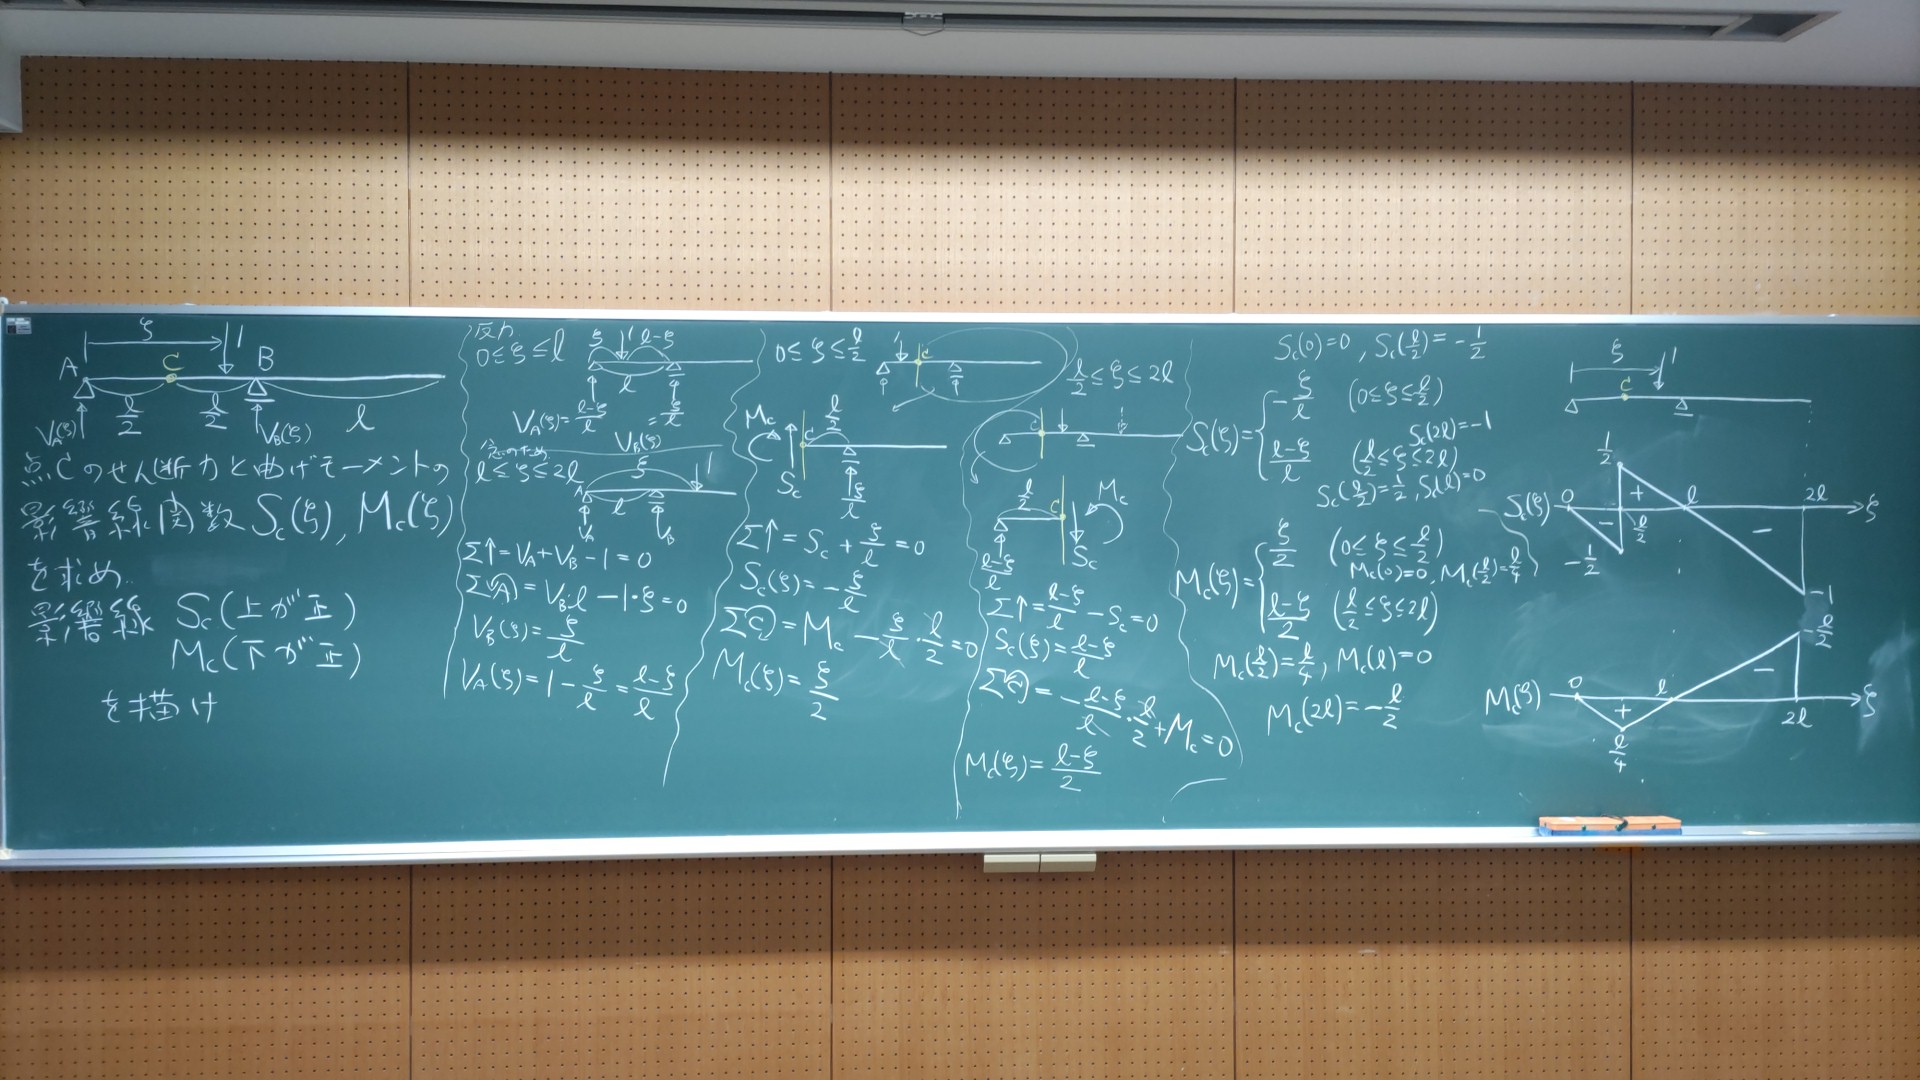 ξ
1
A
C
B
l/2
l/2
l
V_A(ξ)
V_B(ξ)
点Cのせん断力と曲げモーメントの
影響線関数 S_c(ξ), M_c(ξ)
を求め
影響線 S_c(上が正)
M_c(下が正)
を描け
反力
0≤ξ≤l
ξ 1 l-ξ
l
V_A(ξ)=(l-ξ)/l
=ξ/l
V_B(ξ)
l≤ξ≤2l
ξ
1
A
l
V_A
V_B
Σ↑=V_A+V_B-1=0
Σ(A)=V_B·l-1·ξ=0
V_B(ξ)=ξ/l
V_A(ξ)=1-ξ/l=(l-ξ)/l
0≤ξ≤l/2
1
C
M_c
l/2
C
S_c
ξ/l
Σ↑=S_c+ξ/l=0
S_c(ξ)=-ξ/l
Σ(C)=M_c-ξ/l·l/2=0
M_c(ξ)=ξ/2
l/2≤ξ≤2l
C
l/2
C
M_c
S_c
(l-ξ)/l
Σ↑=(l-ξ)/l-S_c=0
S_c(ξ)=(l-ξ)/l
Σ(C)=-(l-ξ)/l·l/2+M_c=0
M_c(ξ)=(l-ξ)/2
S_c(0)=0, S_c(l/2)=-1/2
S_c(ξ)={-ξ/l (0≤ξ≤l/2)
S_c(2l)=-1
(l-ξ)/l (l/2≤ξ≤2l)
S_c(l/2)=1/2, S_c(l)=0
M_c(ξ)={ξ/2 (0≤ξ≤l/2)
M_c(0)=0, M_c(l/2)=l/4
(l-ξ)/2 (l/2≤ξ≤2l)
M_c(l/2)=l/4, M_c(l)=0
M_c(2l)=-l/2
ξ
1
C
1/2
S_c(ξ) 0 + l 2l ξ
- l/2 -
-1/2
-1
-l/2
-
M_c(ξ) 0 l ξ
+ 2l
l/4